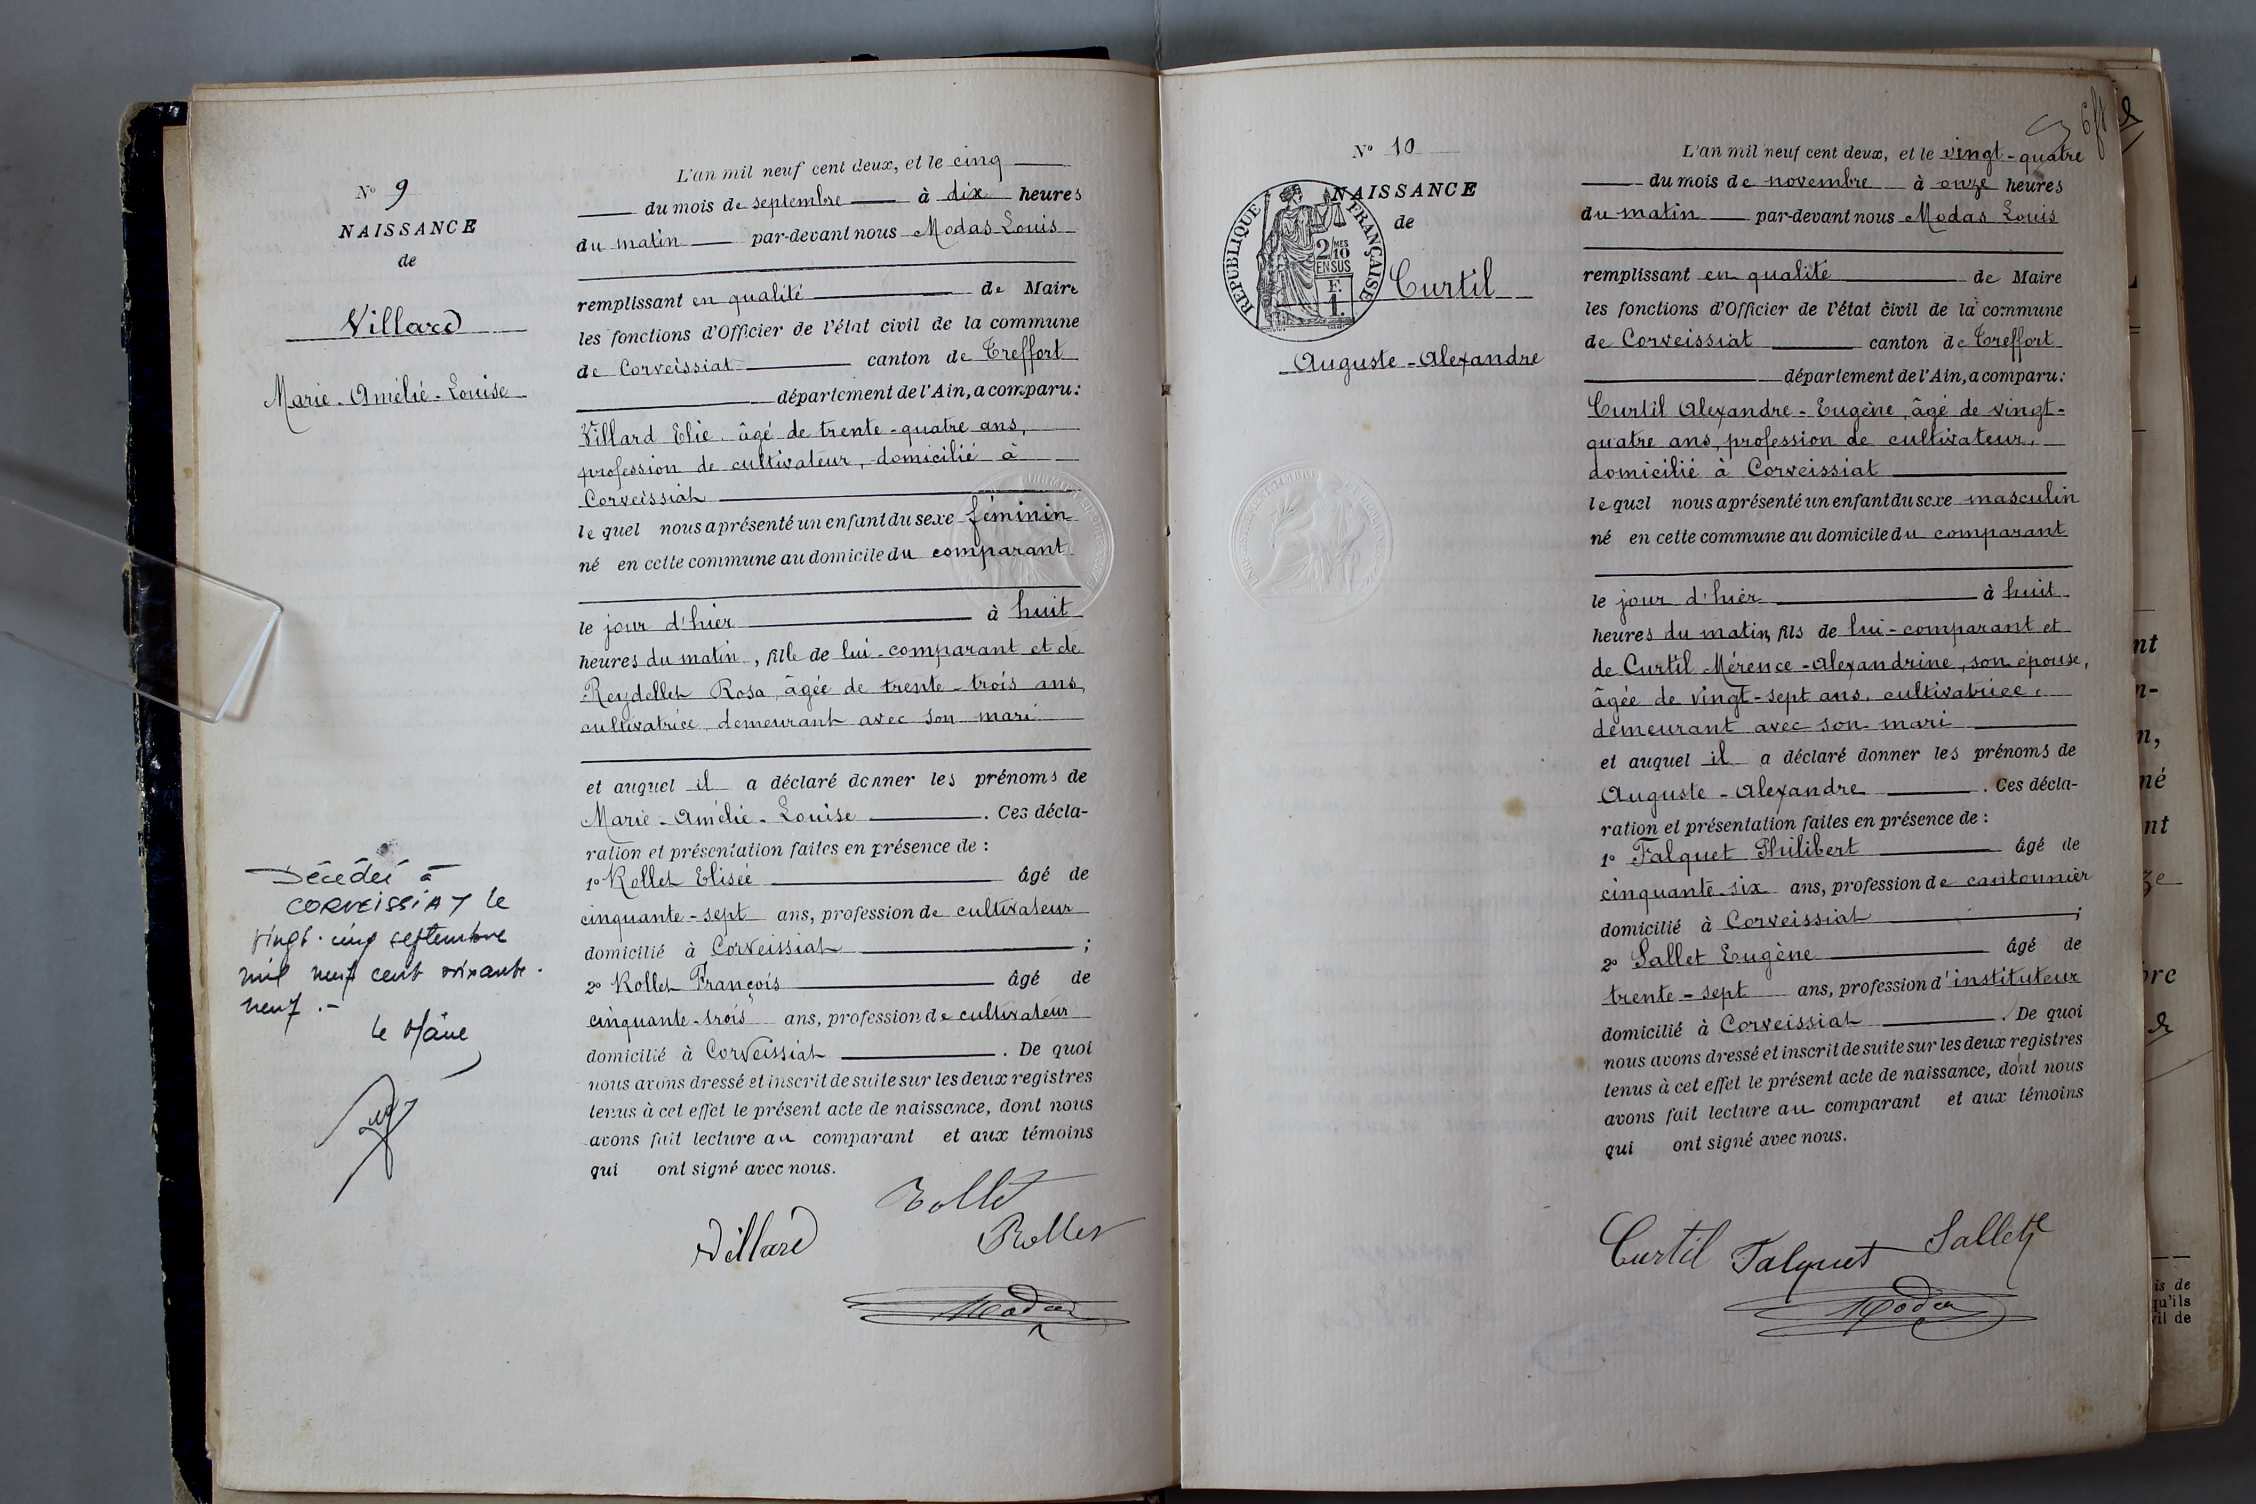 N° 9
NAISSANCE
de
Villard
Marie-Amélie-Louise
Décédée à
CORVEISSIAT le
vingt-cinq septembre
mil neuf cent soixante-
neuf.-
le Maire
L'an mil neuf cent deux, et le cinq
du mois de septembre à dix heures
du matin par-devant nous Modas Louis
remplissant en qualité de Maire
les fonctions d'Officier de l'état civil de la commune
de Corveissiat canton de Treffort
département de l'Ain, a comparu:
Villard Elie âgé de trente-quatre ans,
profession de cultivateur, domicilié à
Corveissiat
le quel nous a présenté un enfant du sexe féminin
né en cette commune au domicile du comparant
le jour d'hier à huit
heures du matin, fille de lui-comparant et de
Reydellet Rosa, âgée de trente-trois ans,
cultivatrice demeurant avec son mari
et auquel il a déclaré donner les prénoms de
Marie-Amélie-Louise. Ces décla-
ration et présentation faites en présence de :
1° Rollet Elisée âgé de
cinquante-sept ans, profession de cultivateur
domicilié à Corveissiat ;
2° Rollet François âgé de
cinquante-trois ans, profession de cultivateur
domicilié à Corveissiat. De quoi
nous avons dressé et inscrit de suite sur les deux registres
tenus à cet effet le présent acte de naissance, dont nous
avons fait lecture au comparant et aux témoins
qui ont signé avec nous.
Rollet
Villard Rollet
Modas
N° 10
NAISSANCE
de
RÉPUBLIQUE FRANÇAISE
2/MES
10
EN SUS
F.
1.
Curtil
Auguste-Alexandre
L'an mil neuf cent deux, et le vingt-quatre
du mois de novembre à onze heures
du matin par-devant nous Modas Louis
remplissant en qualité de Maire
les fonctions d'Officier de l'état civil de la commune
de Corveissiat canton de Treffort
département de l'Ain, a comparu:
Curtil Alexandre-Eugène, âgé de vingt-
quatre ans, profession de cultivateur,
domicilié à Corveissiat
le quel nous a présenté un enfant du sexe masculin
né en cette commune au domicile du comparant
le jour d'hier à huit
heures du matin, fils de lui-comparant et
de Curtil Mérence-Alexandrine, son épouse,
âgée de vingt-sept ans, cultivatrice,
demeurant avec son mari
et auquel il a déclaré donner les prénoms de
Auguste-Alexandre. Ces décla-
ration et présentation faites en présence de :
1° Falquet Philibert âgé de
cinquante-six ans, profession de cantonnier
domicilié à Corveissiat ;
2° Sallet Eugène âgé de
trente-sept ans, profession d'instituteur
domicilié à Corveissiat. De quoi
nous avons dressé et inscrit de suite sur les deux registres
tenus à cet effet le présent acte de naissance, dont nous
avons fait lecture au comparant et aux témoins
qui ont signé avec nous.
Curtil Falquet Sallet
Modas